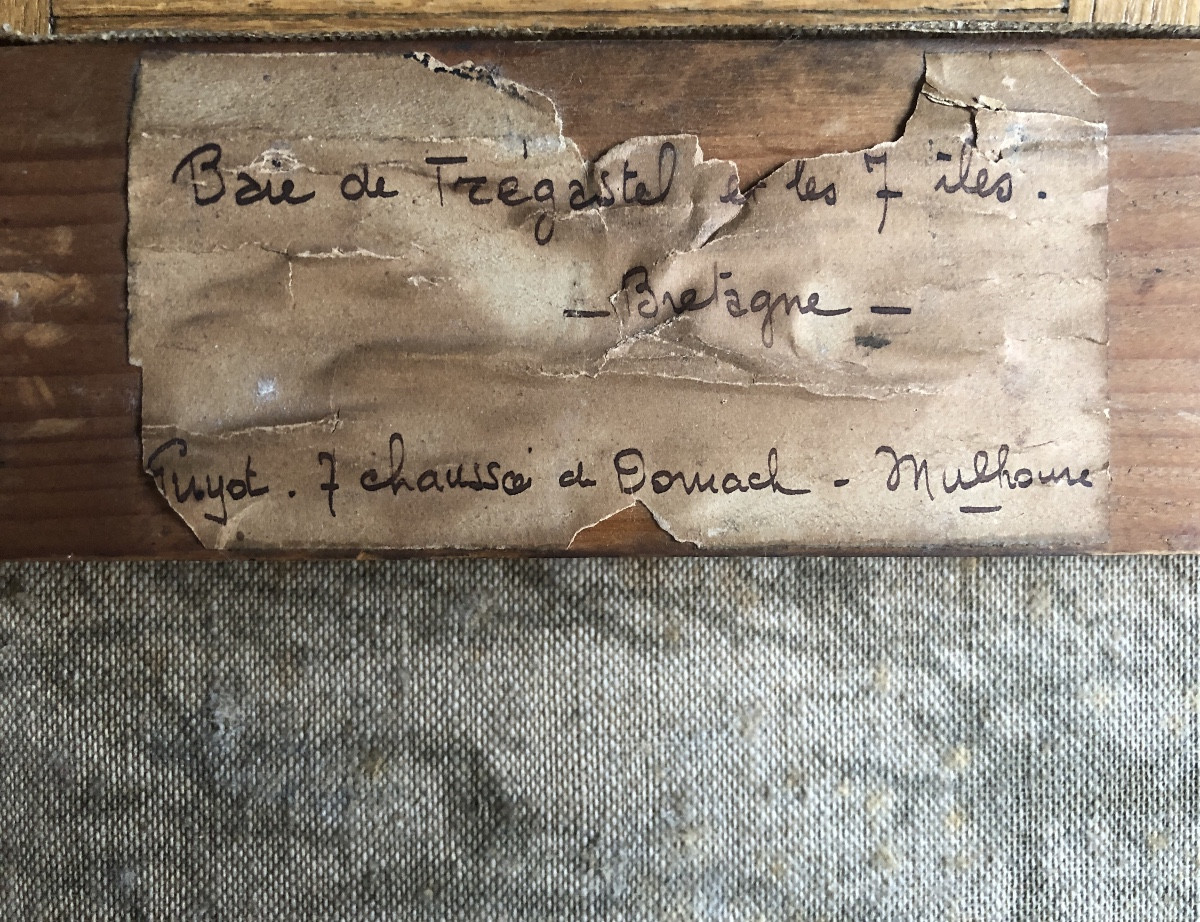 Baie de Trégastel et les 7 îles.
- Bretagne -
Guyot. 7 chaussée de Dornach - Mulhouse